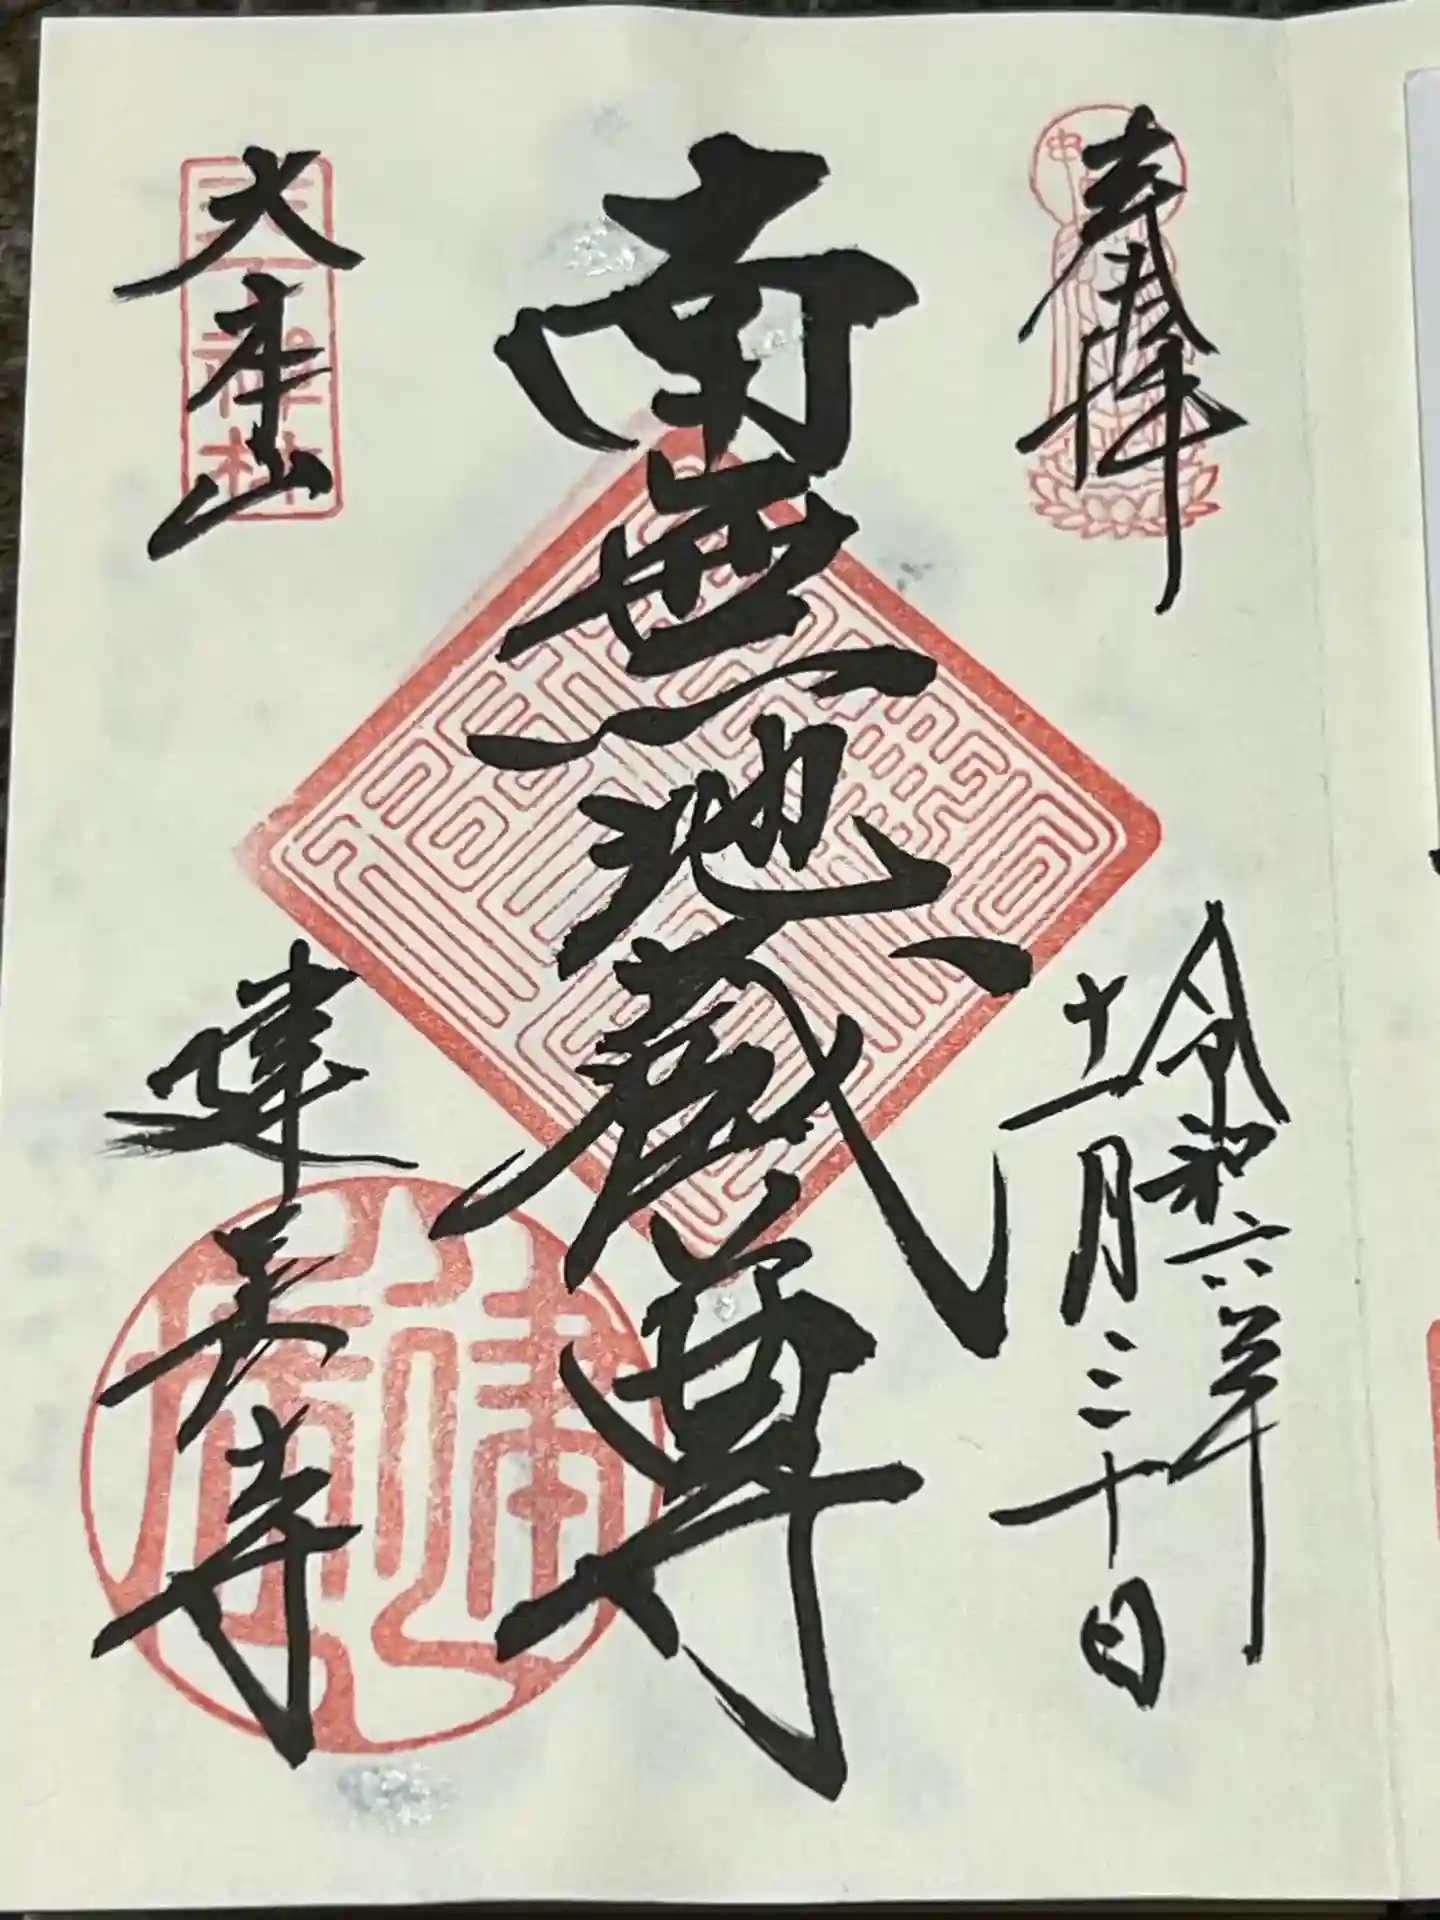 奉拝
令和六年
十一月三十日
南無地蔵尊
天下禅林
大本山
建長寺